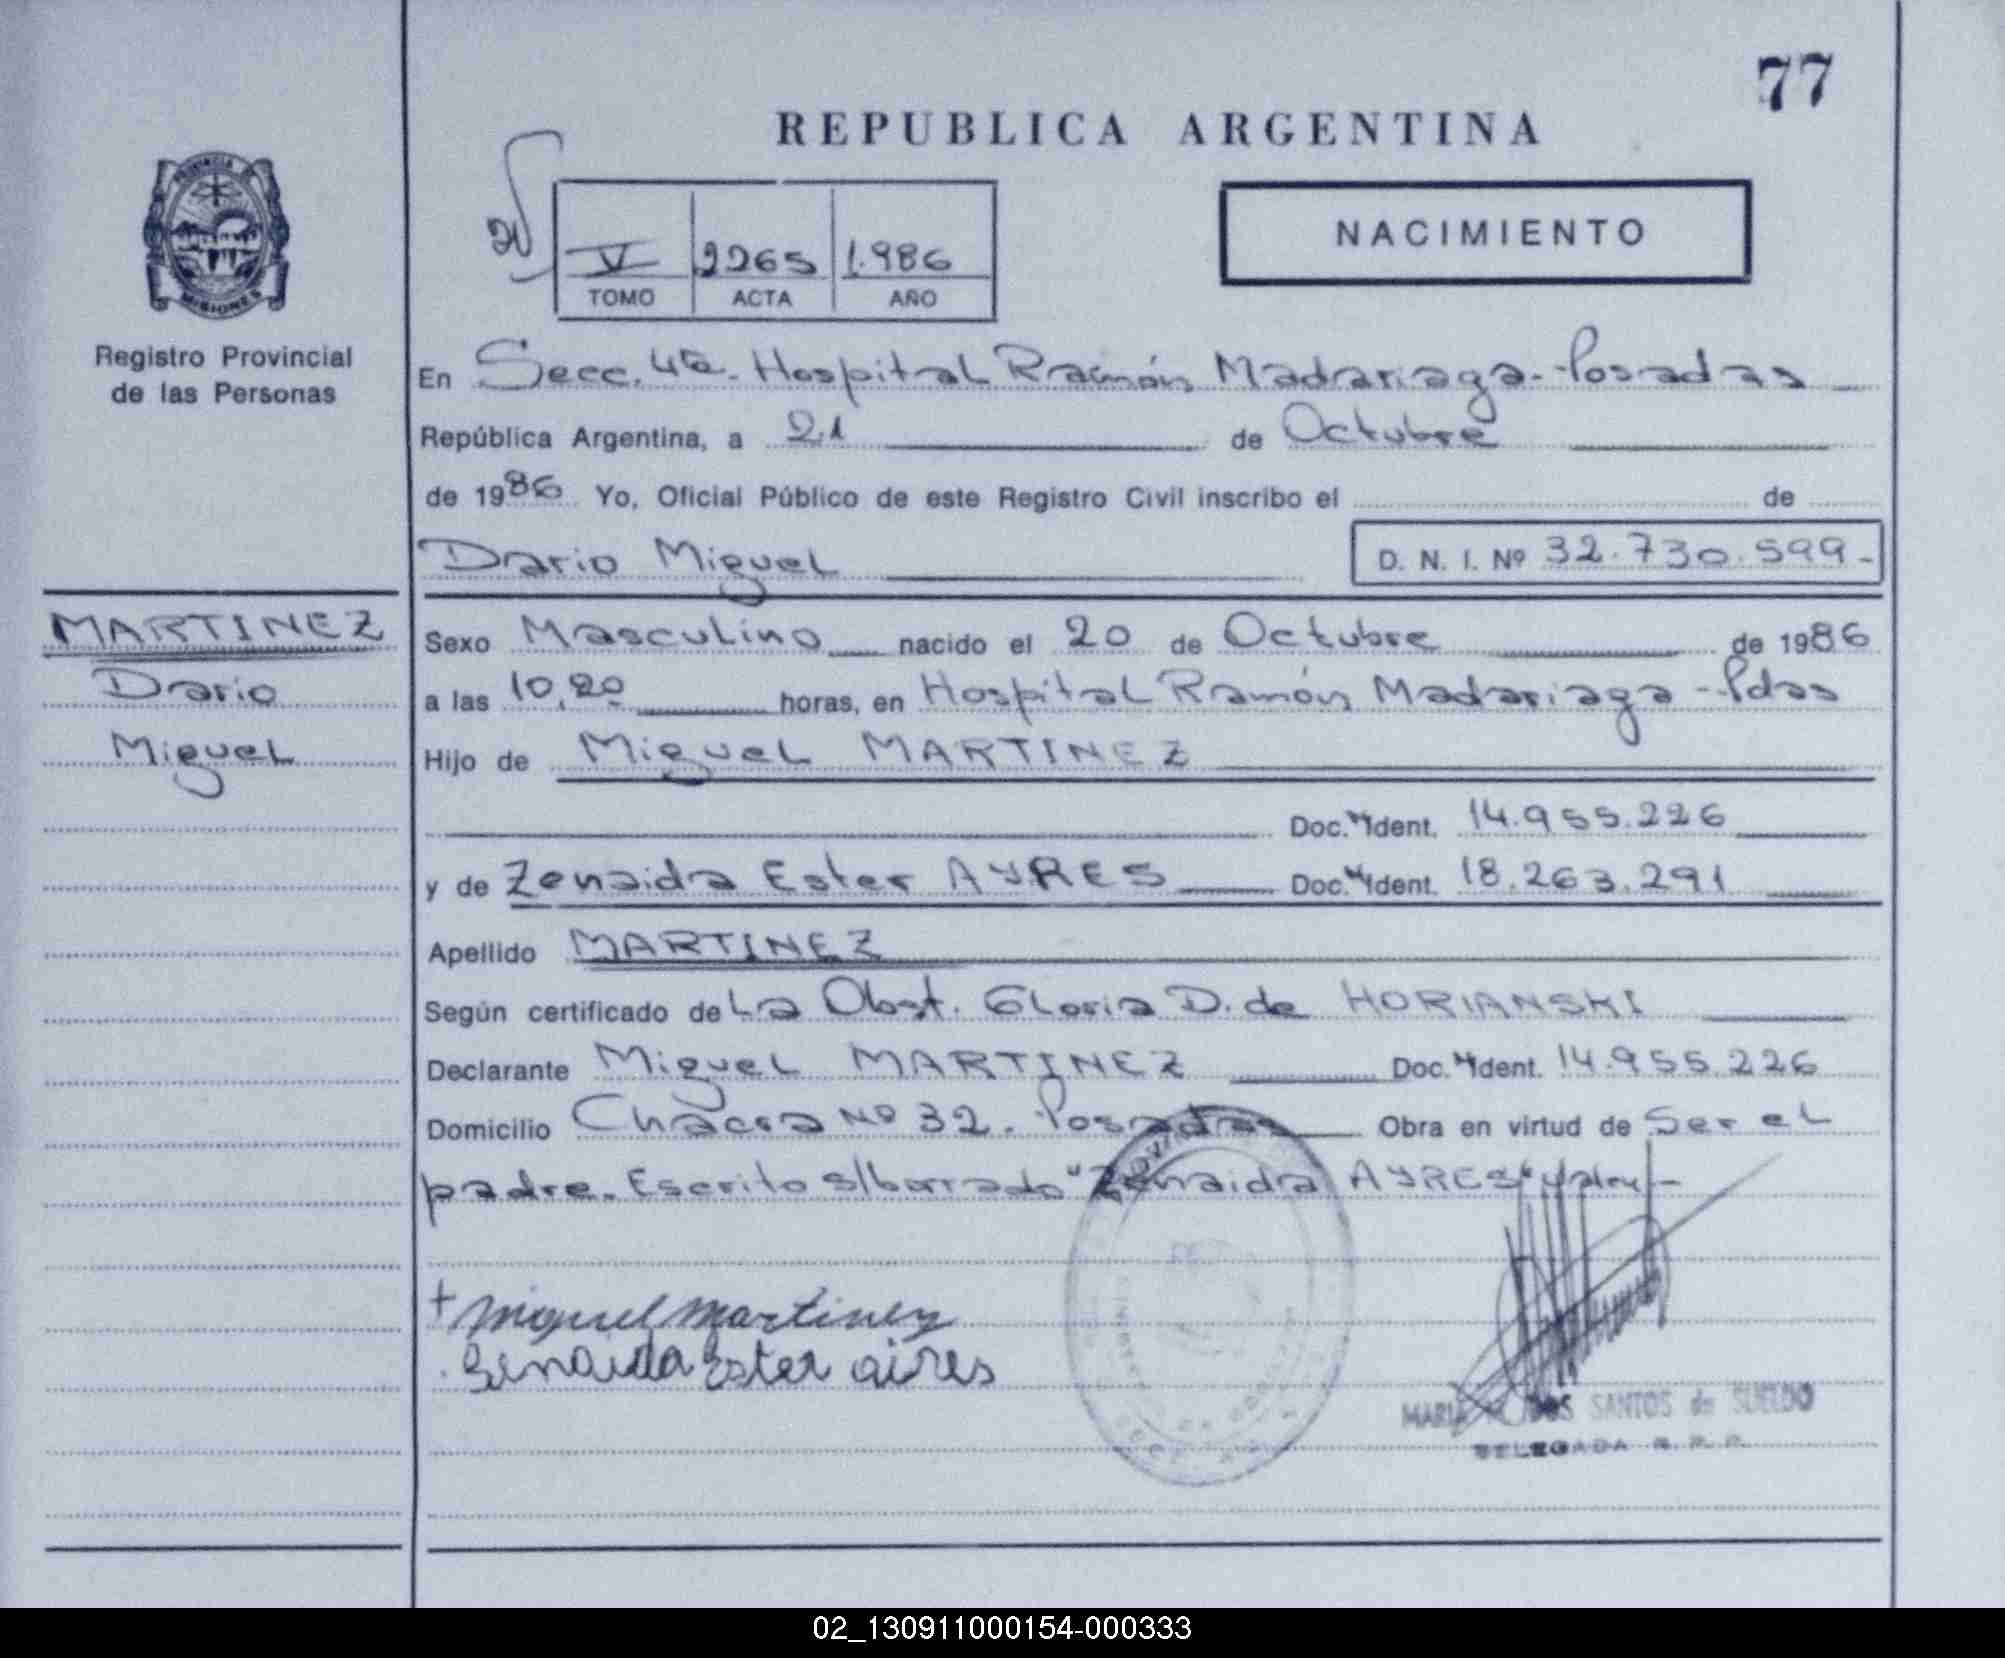 77
REPUBLICA ARGENTINA
PROVINCIA DE
MISIONES
V 2265 1.986
TOMO ACTA AÑO
NACIMIENTO
Registro Provincial
de las Personas
En Secc. 4ta - Hospital Ramón Madariaga - Posadas
República Argentina, a 21 de Octubre
de 1986 Yo, Oficial Público de este Registro Civil inscribo el de
Dario Miguel D. N. I. Nº 32.730.599-
MARTINEZ
Dario
Miguel
Sexo Masculino nacido el 20 de Octubre de 1986
a las 10,20 horas, en Hospital Ramón Madariaga - Pdas
Hijo de Miguel MARTINEZ
Doc. Ident. 14.955.226
y de Zenaida Ester AYRES Doc. Ident. 18.263.291
Apellido MARTINEZ
Según certificado de La Obst. Gloria D. de HORIANSKI
Declarante Miguel MARTINEZ Doc. Ident. 14.955.226
Domicilio Chacra Nº 32. Posadas Obra en virtud de Ser el
padre. Escrito s/borrado "Zenaida AYRES" Vale.-
+ Miguel Martinez
Senaida Ester aires
MARIA DOS SANTOS de SUELDO
DELEGADA R. P. P.
02_130911000154-000333